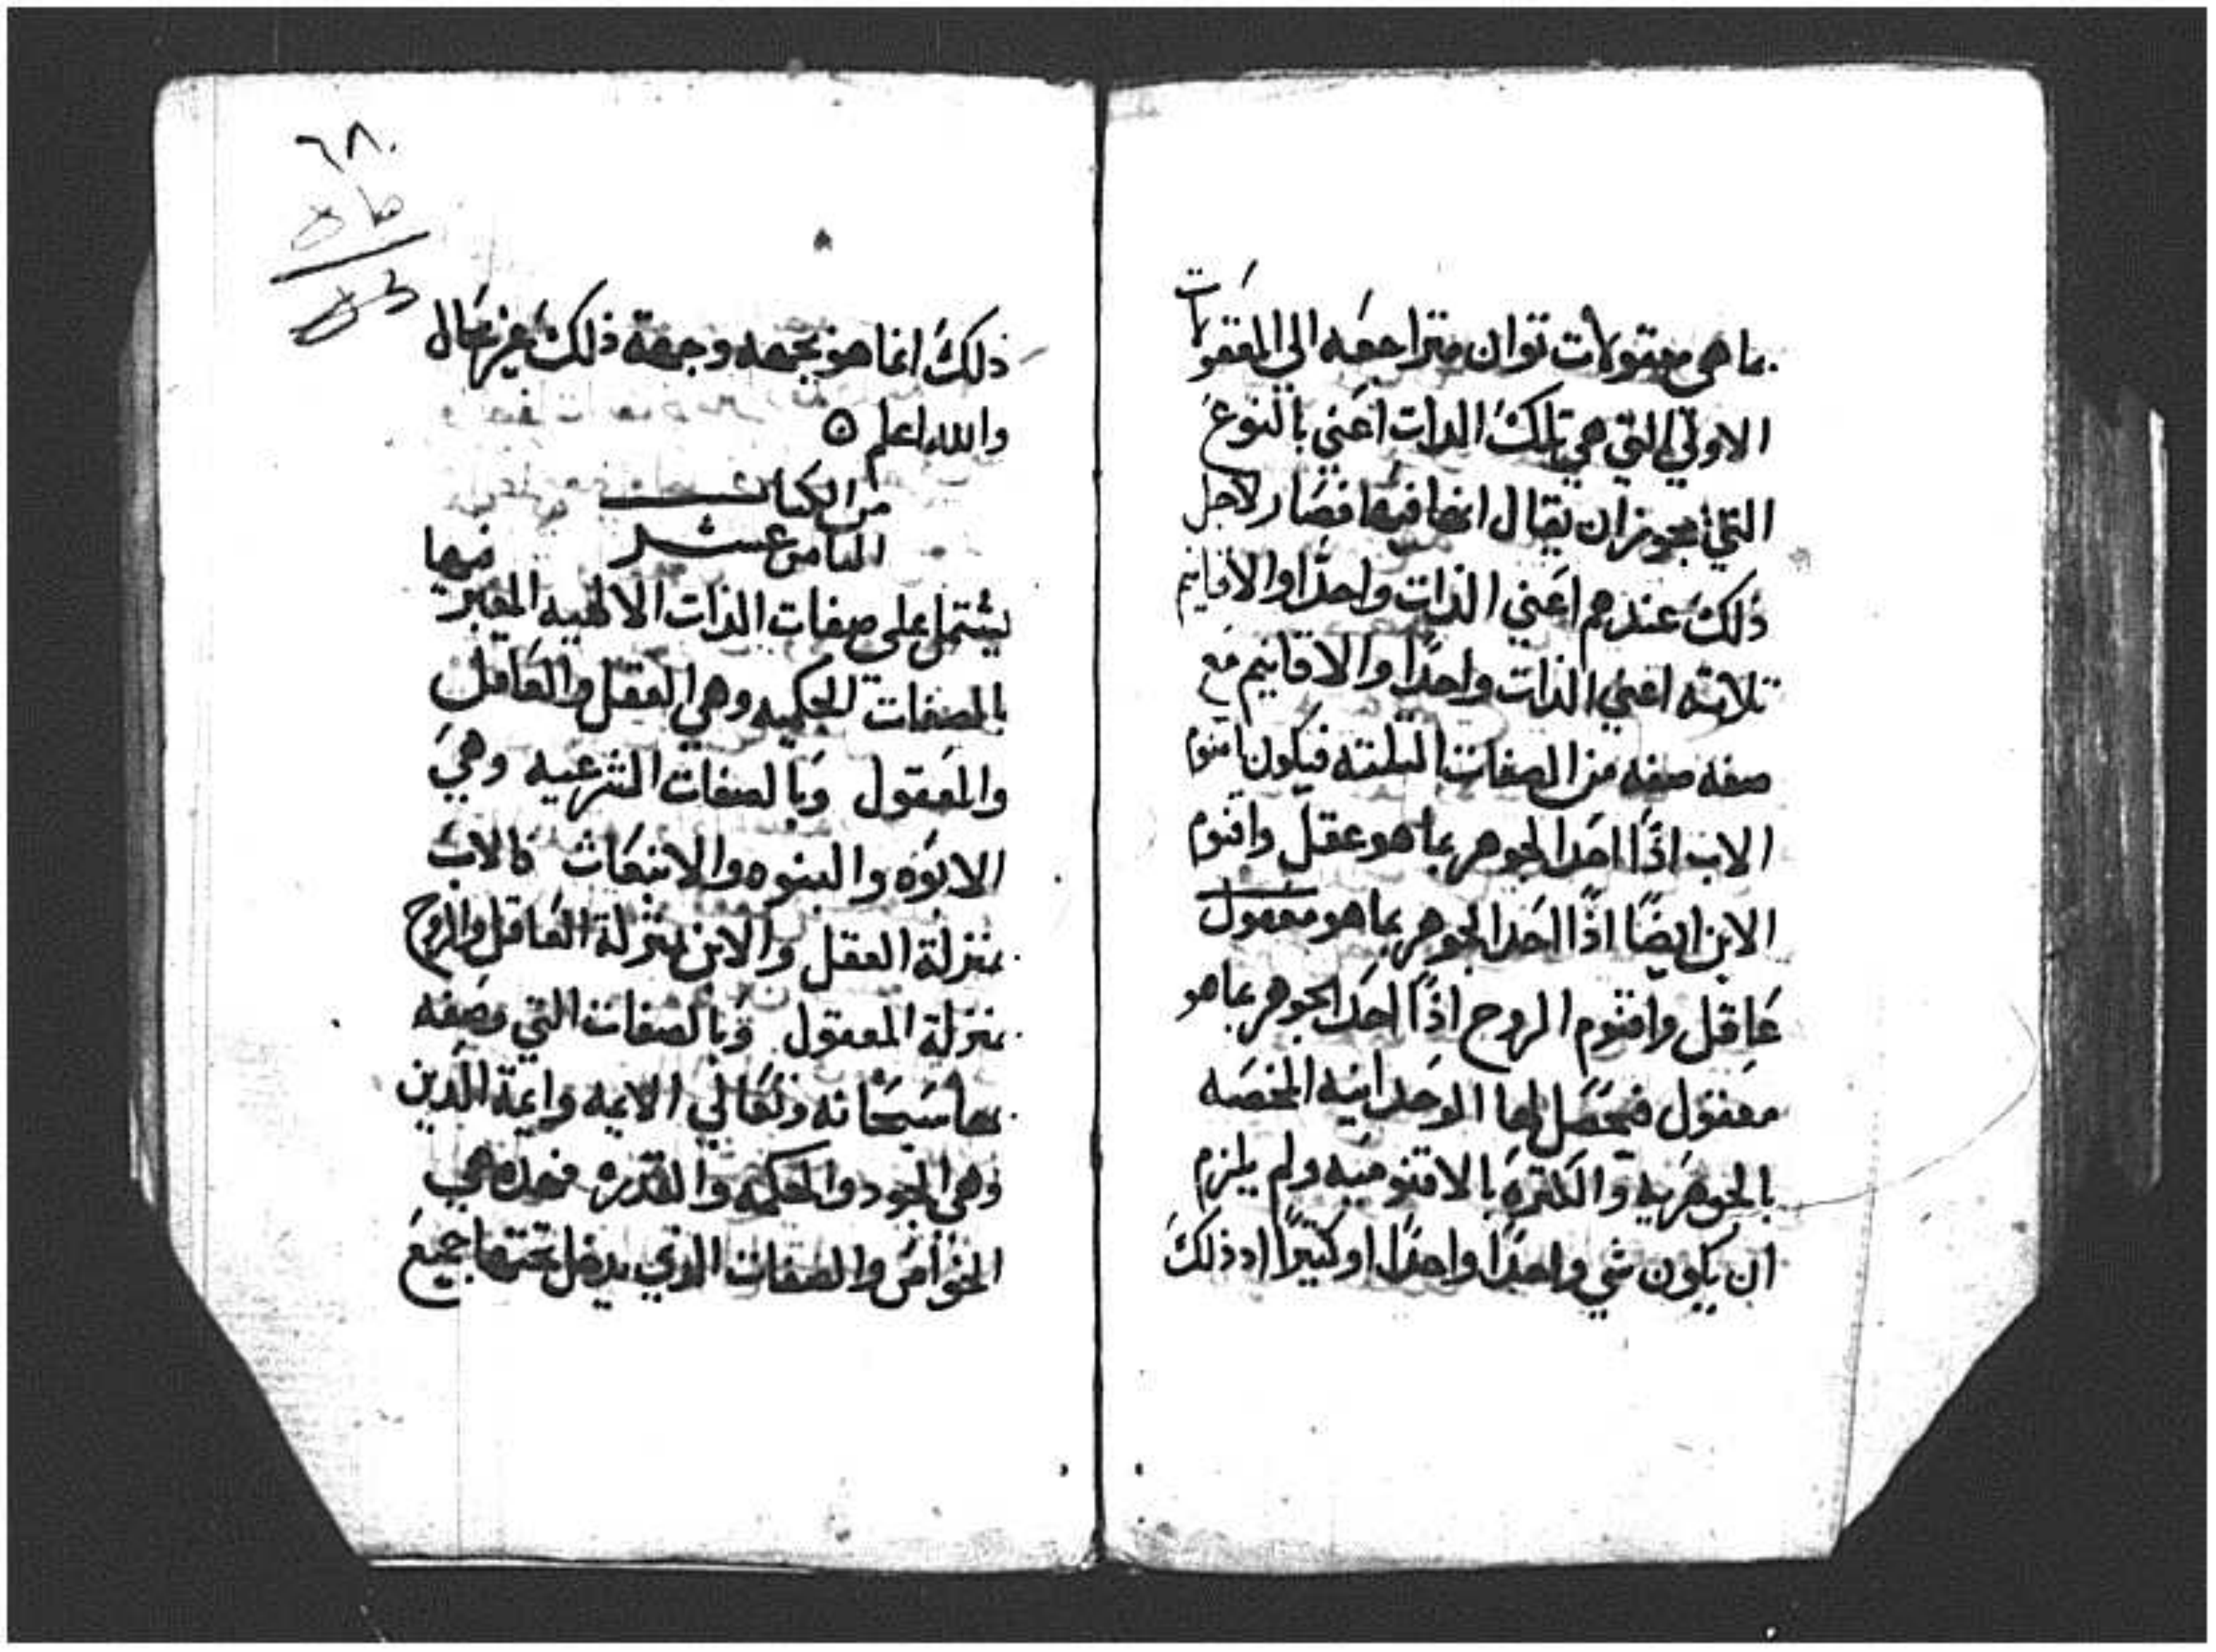 بما هي معقولات ثوان متراجعه الى المعقولات
الاولي التي هي تلك الدات اعني بالنوع
التي يجوز ان يقال انها فيها فصار لاجل
ذلك عندهم اعني الذات واحدًا والاقانيم
تلاتة اعني الذات واحدًا والاقانيم مع
صفه صفه من الصفات التلتة فيكون اقنوم
الاب اذًا احد الجوهر بما هو عقل واقنوم
الابن ايضًا اذًا احد الجوهر بما هو معقول
عَاقل واقنوم الروح اذًا احد الجوهر بما هو
معقول فتحصَل لها الوحدانيه المختصَه
بالجوهريه والكترة بالاقنوميه ولم يلزم
ان يكون شي واحدًا واحدًا او كتيرًا اد ذلك
٦٨
ذلك انما هو بجهه وجهة ذلك غير محال
والله اعلم ٥
من الكتاب
التامن عشر فيها
يشتمل على صفات الذات الالهيه المعبر
بالصفات الحكميه وهي العقل والعاقل
والمعقول وبالصفات الشرعيه وهي
الابوه والبنوه والانبعاث فالاب
بمنزلة العقل والابن بمنزلة العاقل والروح
بمنزلة المعقول وبالصفات التي وصفه
بها سبحانه وتعالي الايمه وايمة الدين
وهي الجود والحكمه والقدره فهده هي
الخواص والصفات الذي يدخل تحتها جميع